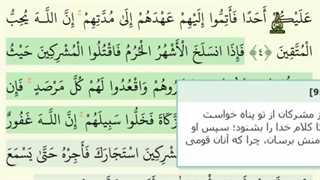 عَلَيْكُمْ أَحَدًا فَأَتِمُّوا إِلَيْهِمْ عَهْدَهُمْ إِلَىٰ مُدَّتِهِمْ ۚ إِنَّ اللَّـهَ يُحِبُّ
الْمُتَّقِينَ ﴿٤﴾ فَإِذَا انسَلَخَ الْأَشْهُرُ الْحُرُمُ فَاقْتُلُوا الْمُشْرِكِينَ حَيْثُ
رُوهُمْ وَاقْعُدُوا لَهُمْ كُلَّ مَرْصَدٍ ۚ فَإِن
زَّكَاةَ فَخَلُّوا سَبِيلَهُمْ ۚ إِنَّ اللَّـهَ غَفُورٌ
شْرِكِينَ اسْتَجَارَكَ فَأَجِرْهُ حَتَّىٰ يَسْمَعَ
[9
ز مشرکان از تو پناه خواست
تا کلام خدا را بشنود؛ سپس او
منش برسان، چرا که آنان قومی